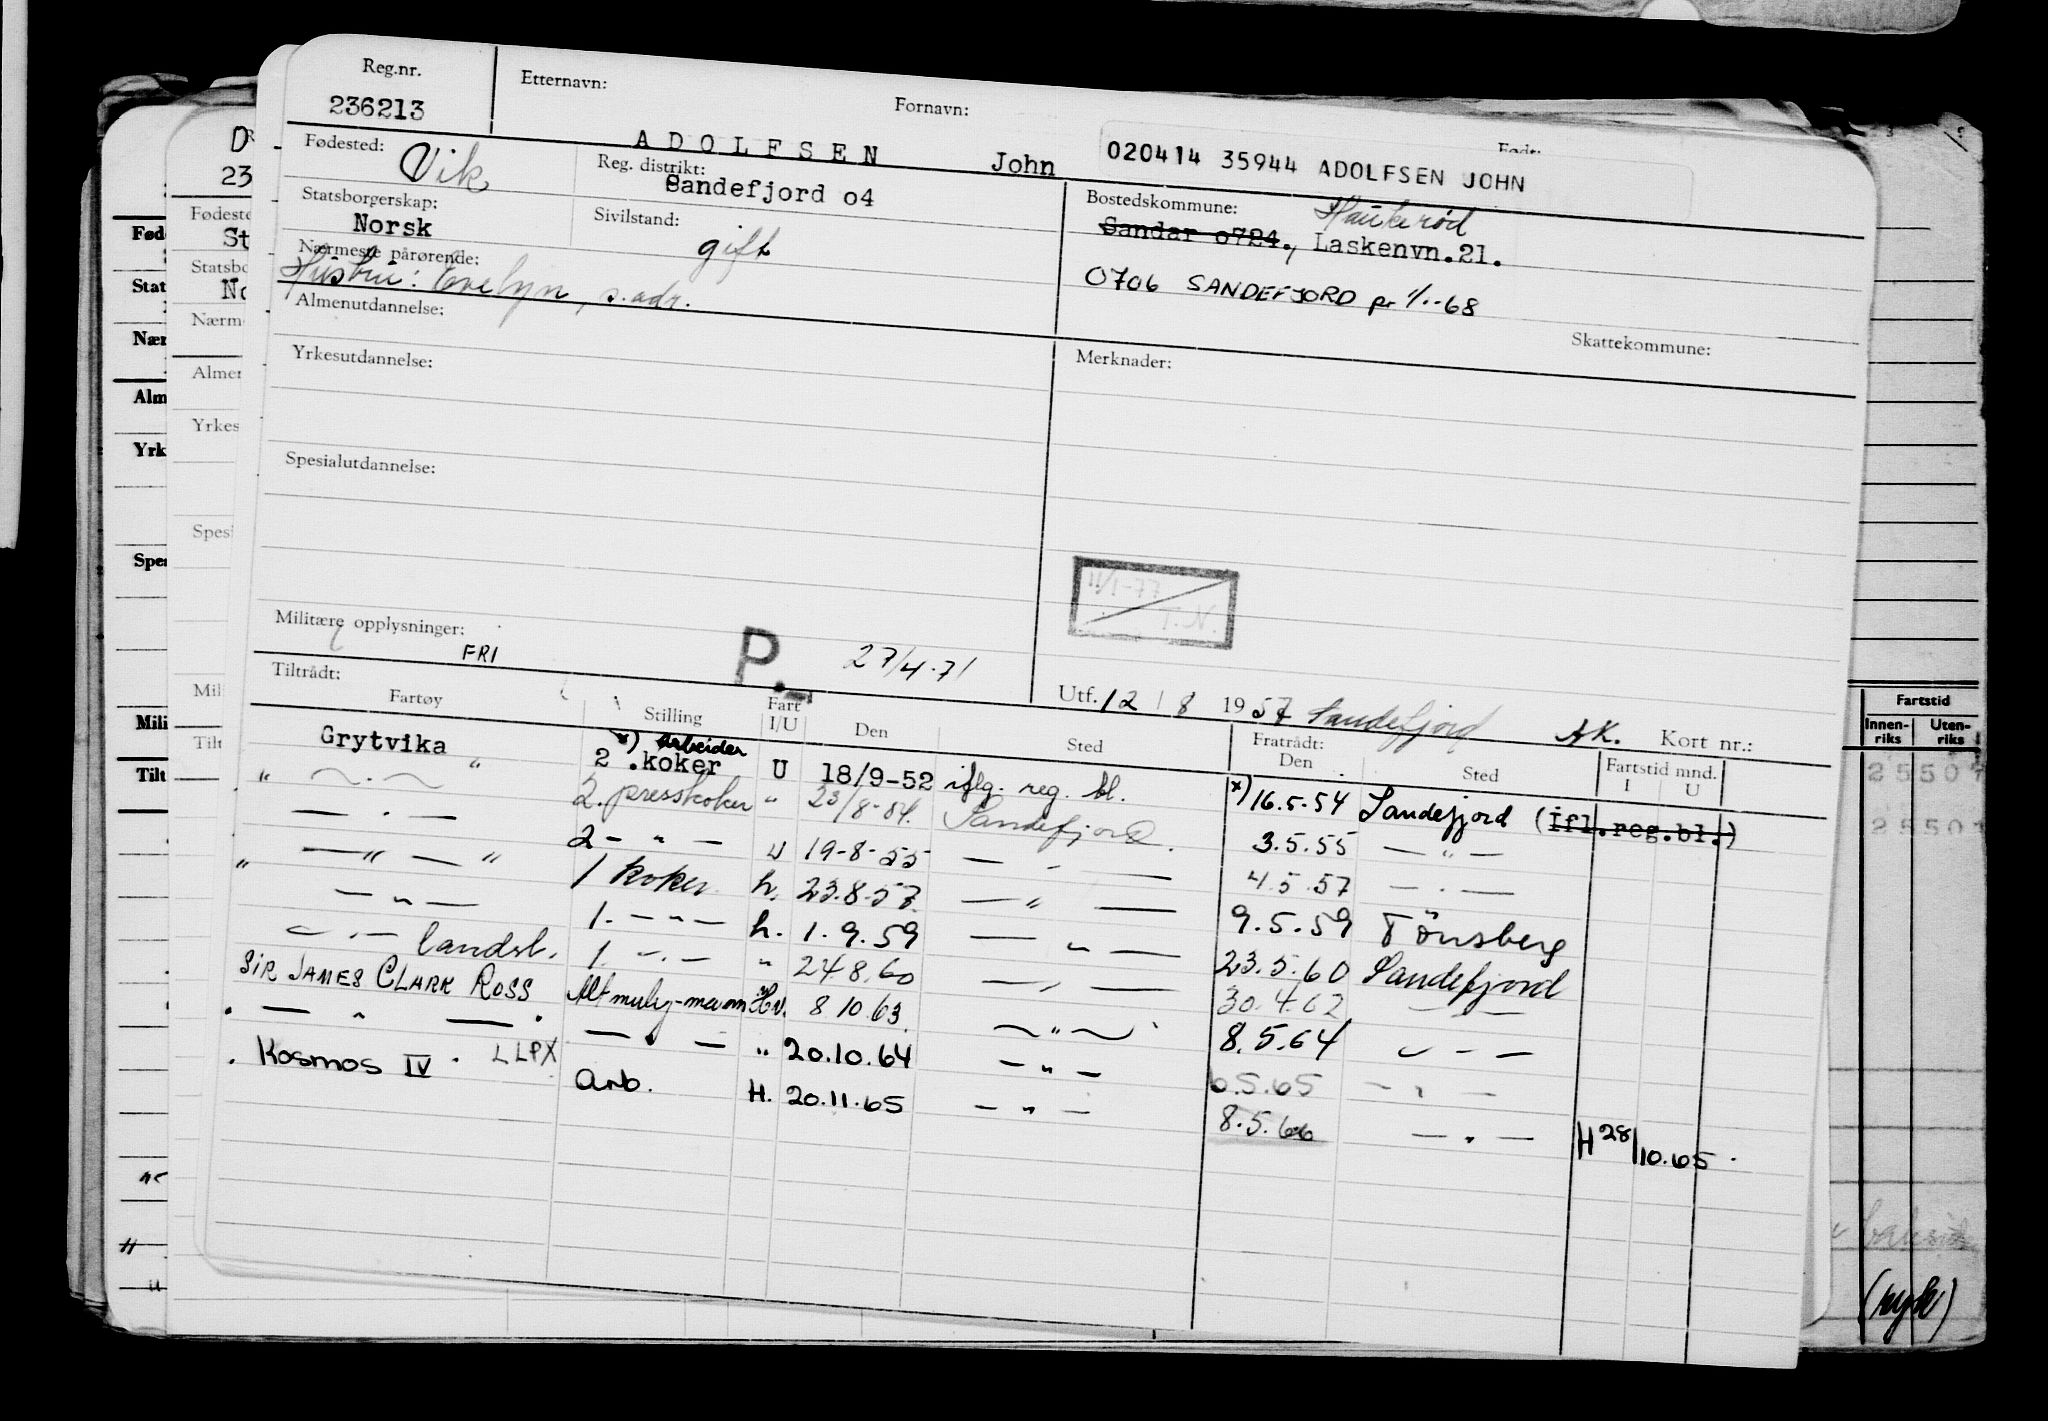 Reg.nr. Etternavn: Fornavn: Født:
236213 ADOLFSEN John 020414 35944 ADOLFSEN JOHN
Fødested: Vik Reg. distrikt: Sandefjord o4 Bostedskommune: Haukerød
Statsborgerskap: Norsk Sivilstand: gift Sandar o724., Laskenvn.21.
Nærmeste pårørende: Hustru: Evelyn, s. adr. 0706 SANDEFJORD pr 1/1-68
Almenutdannelse: Skattekommune:
Yrkesutdannelse: Merknader:
Spesialutdannelse:
11/1-77
T.N.
Militære opplysninger: FRI P. 27/4-71
Tiltrådt: Utf. 12 / 8 1957 Sandefjord AK. Kort nr.:
Fartøy Stilling Fart I/U Den Sted Fratrådt: Den Sted Fartstid mnd. I U
Grytvika x) Arbeider
2.koker U 18/9-52 iflg. reg. bl. x) 16.5.54 Sandefjord (Ifl.reg.bl.)
" — . — " 2. presskoker " 23/8-54. Sandefjord. 3.5.55 — " —
— . — 2 — " — U 19-8-55 — " — 4.5.57 — . —
" — " — " 1 koker h. 23.8.57. — " — 9.5.59 Tönsberg
— " — 1. — " — h. 1.9.59 — " — 23.5.60 Sandefjord
— . — landst. 1. — . — " 24.8.60 — " — 30.4.62 — " —
SIR JAMES CLARK ROSS Altmulig-mann Hv. 8.10.63. — " — 8.5.64 — " —
. — " — . — . — " 20.10.64 — " — 6.5.65 — " —
. Kosmos IV . LLPX Arb. H. 20.11.65 — " — 8.5.66 — " — H 28/10.65.
Fartstid
Innen-riks Uten-riks
(ryk)